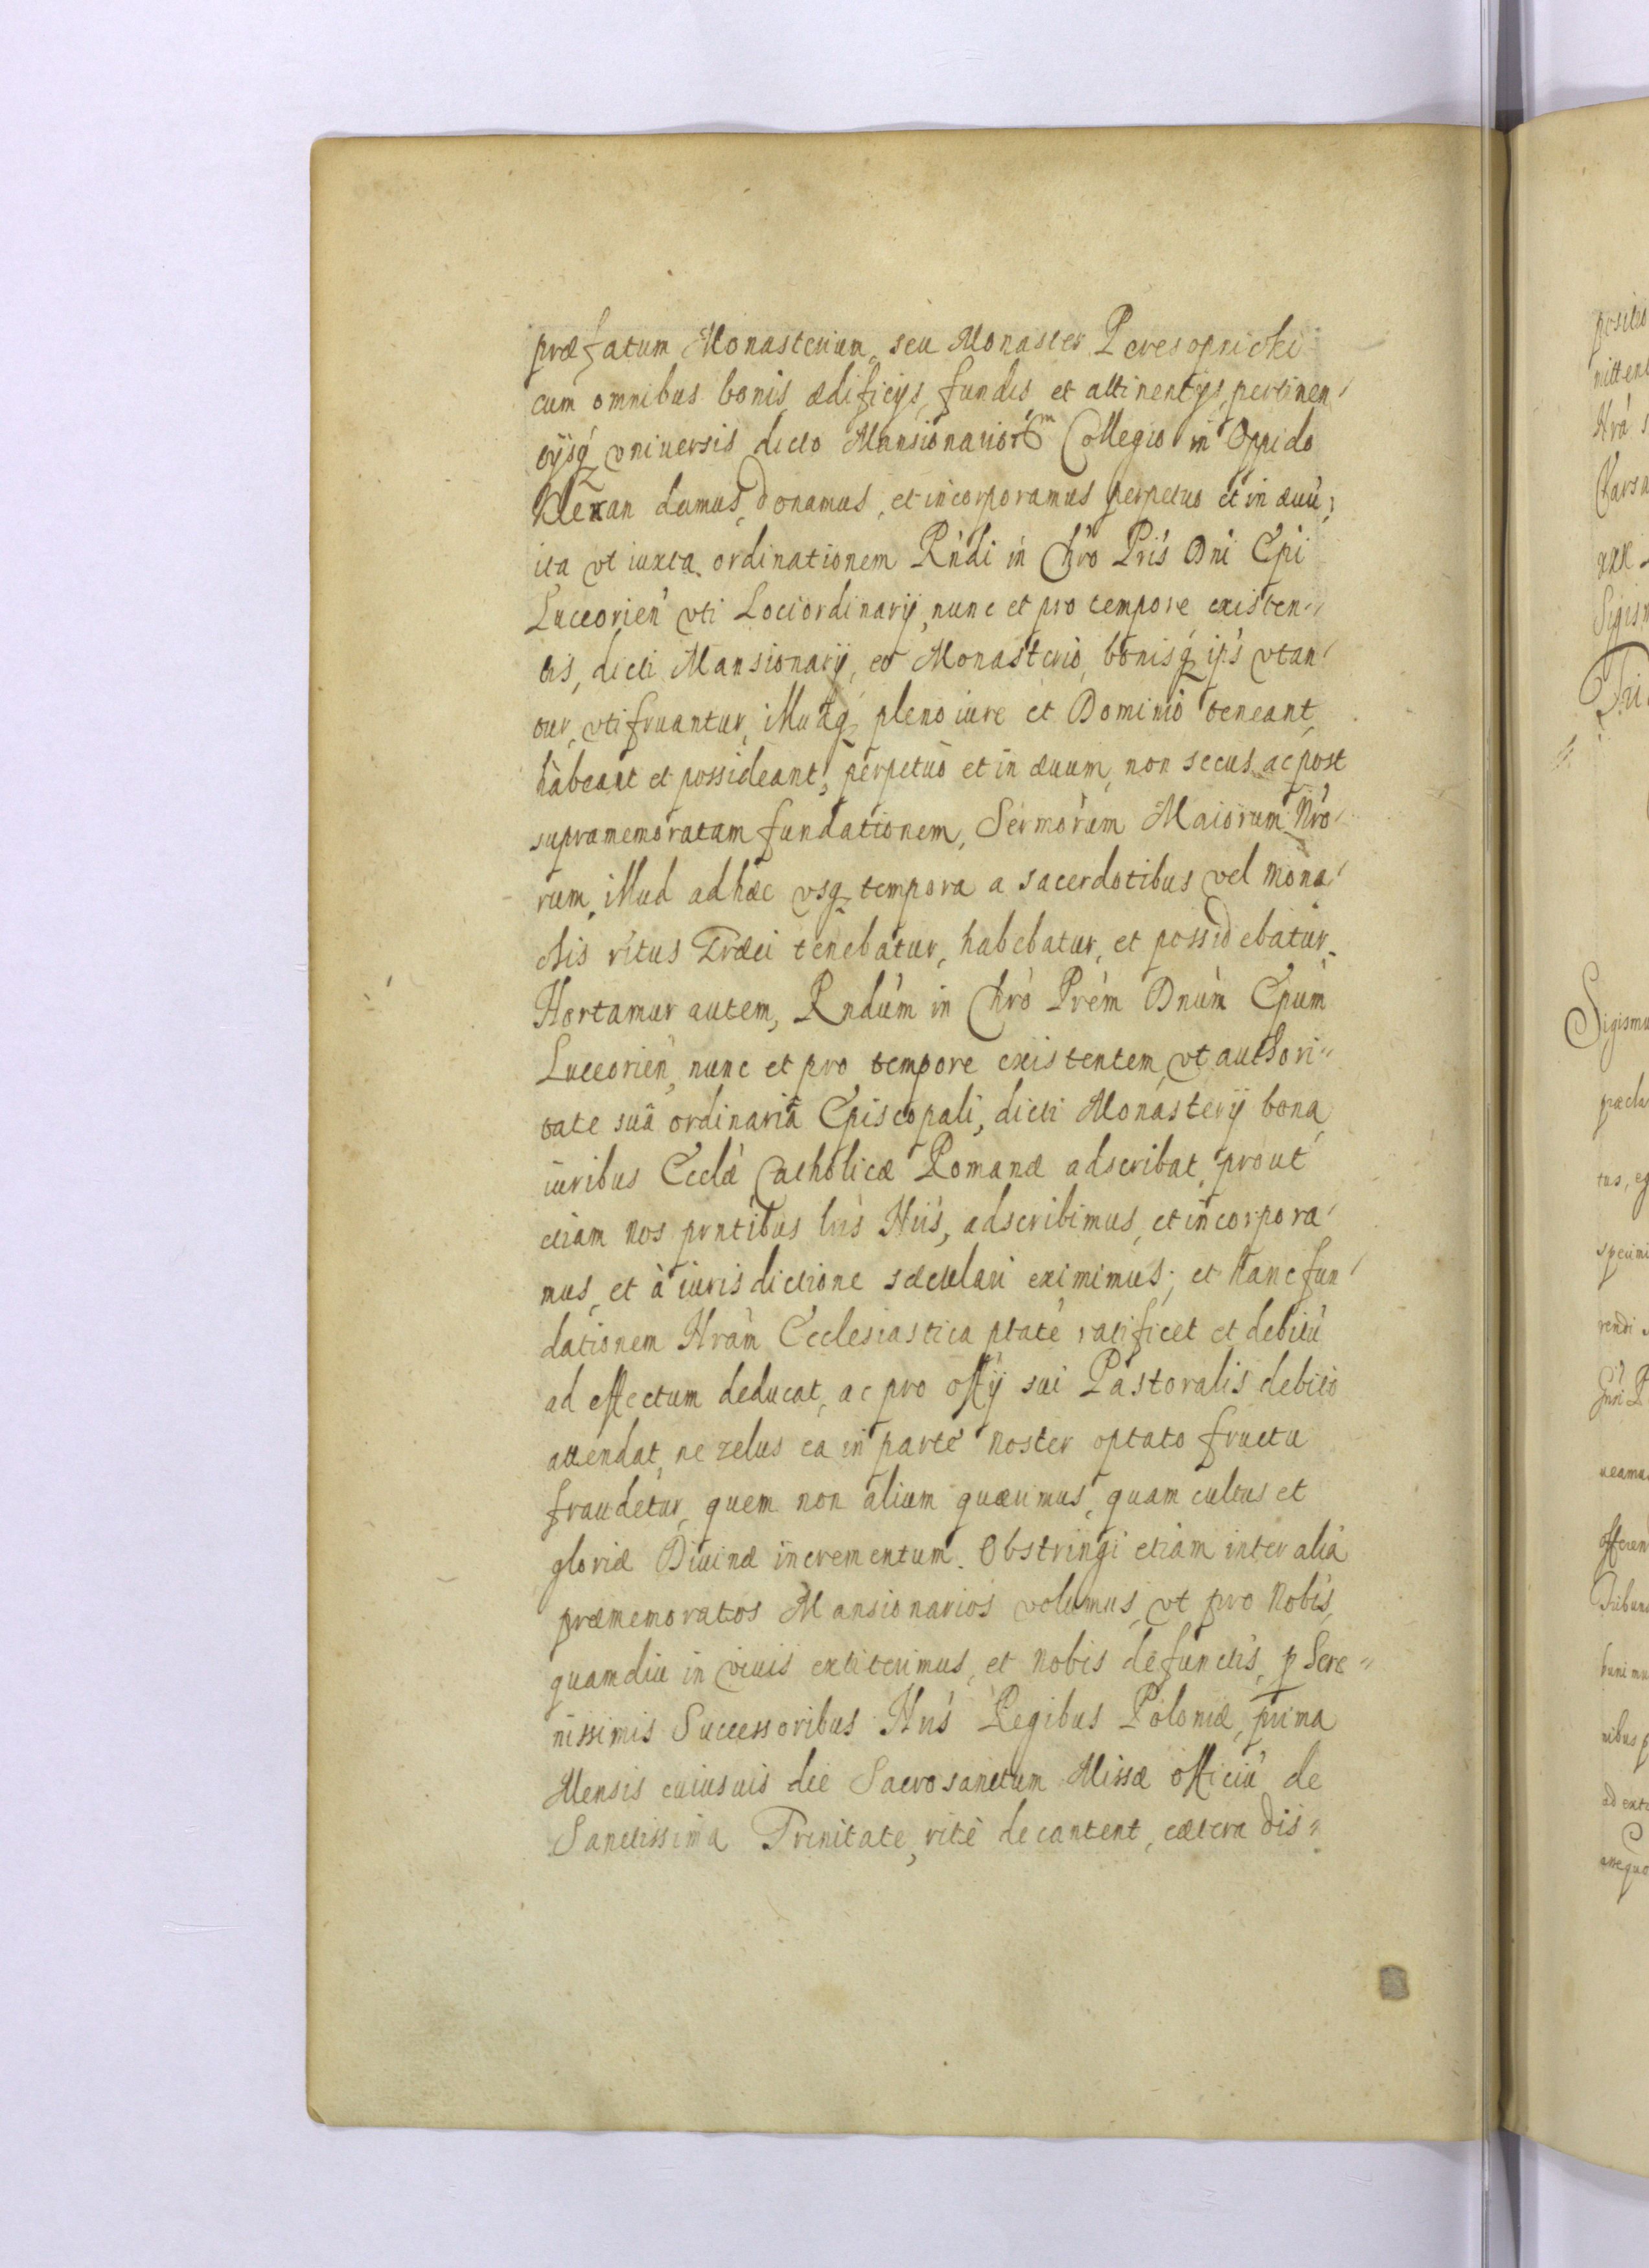 præfatum Monasterium, seu Monaster Peresopnicki
cum omnibus bonis, ædificijs, fundis et attinentijs, pertinen
tijsq́ vniuersis dicto Mansionariorũm Collegio in Oppido
Klewan damus, donamus, et incorporamus perpetuo et in æuũ;
ita vt iuxta ordinationem Rńdi in Chro Pris Dni Epi
Luceorień vti Lociordinarij, nunc et pro tempore existen
tis, dicti Mansionarij, eo Monasterio, bonisq́ ip̃s vtan
tur, vtifruantur, illudq́ pleno iure et Dominio teneant,
habeant et possideant, perpetuò et in æuum, non secus ac post
supramemoratam fundationem, Sermorum Maiorum Nro
rum, illud adhæc vsq́ tempora a sacerdotibus vel mona
chis ritus Græci tenebatur, habebatur, et possidebatur.
Hortamur autem, Rndúm in Chrò Prém Dnúm Epúm
Luceorień, nunc et pro tempore existentem, vt authori
tate suâ ordinariâ Episcopali, dicti Monasterij bona,
iuribus Ecclæ Catholicæ Romanæ adscribat, prout
etiam nos pr̃ntibus lris Nris, adscribimus, et incorpora
mus, et à iurisdictione sæculari eximimus; et hanc fun
dationem Nrám Ecclesiastica ptate ratificet et debitũ
ad effectum deducat, ac pro offij sui Pastoralis debito
attendat, ne zelus ea in parte noster optato fructu
fraudetur, quem non alium quærimus, quam cultus et
gloriæ Diuinæ incrementum. Obstringi etiam inter alia
præmemoratos Mansionarios volumus, vt pro Nobis,
quamdiu in viuis extiterimus, et nobis defunctis, p Sere
nissimis Successoribus Nris Regibus Poloniæ, prima
Mensis cuiusuis die Sacrosanctum Missæ officiũ de
Sanctissima Trinitate, ritè decantent, cætera dis